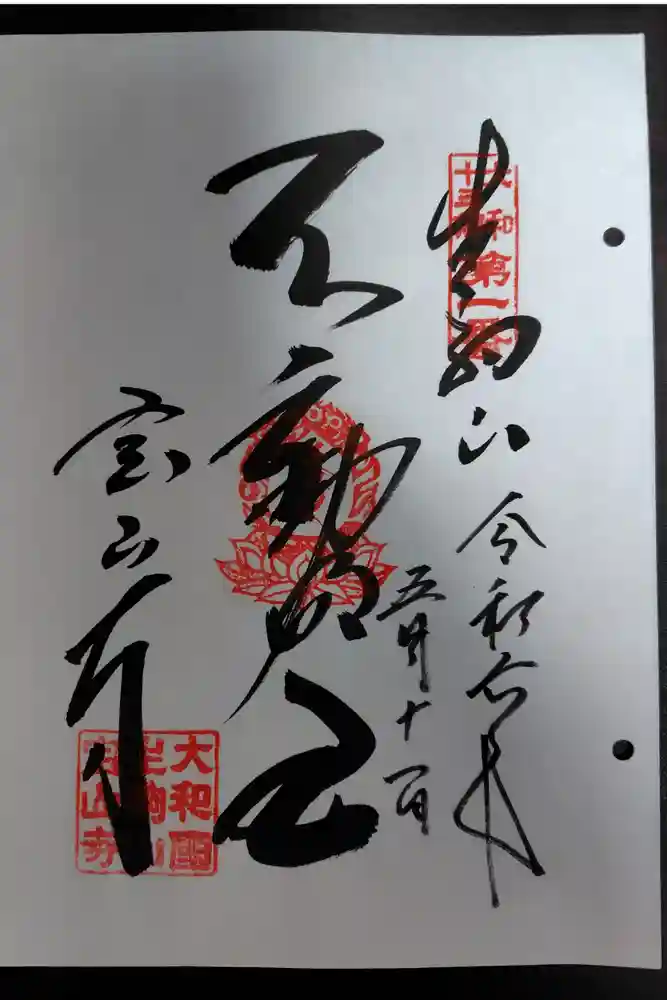 大和
十三佛
第一番
生駒山 令和六年
五月十一日
不動明王
宝山寺
大和國
生駒山
山寺